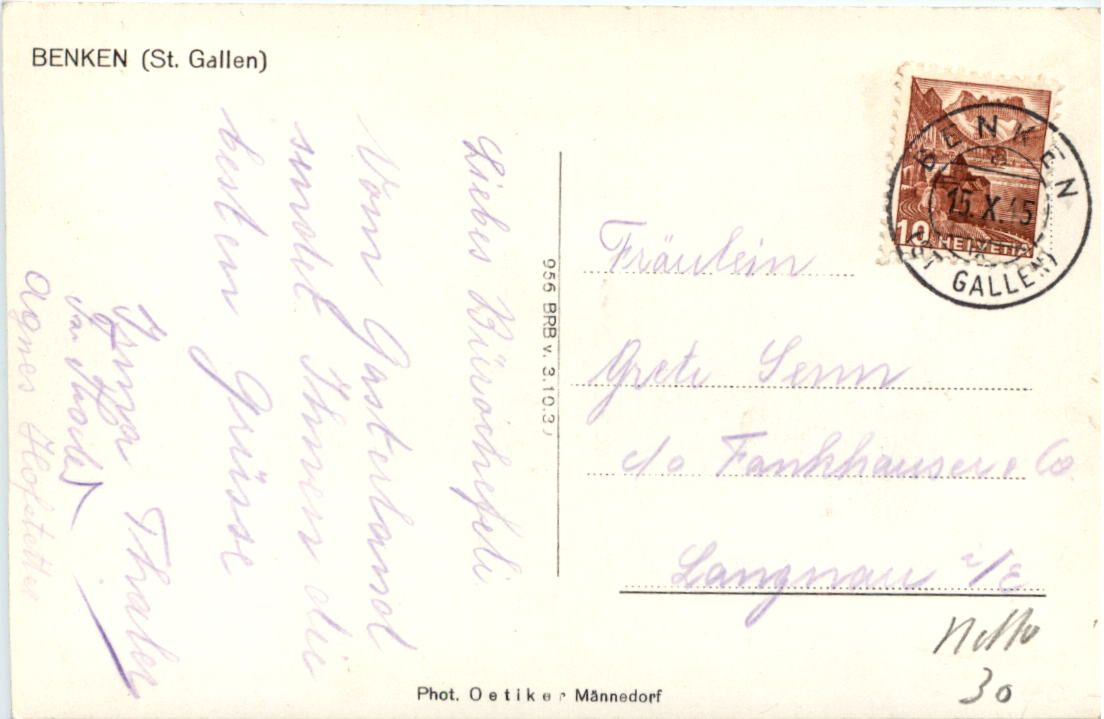 BENKEN (St. Gallen)
Liebes Bürochefeli.
Vom Gasterland
sendet Ihnen die
besten Grüsse
Irma Thaler
Agnes Hofstetter
956 BRB v. 3.10.3
BENKEN
15.X.45
(ST. GALLEN)
10 HELVETIA
Fräulein
Grete Senn
c/o Fankhauser & Co
Langnau i/E
Netto
30
Phot. Oetiker Männedorf